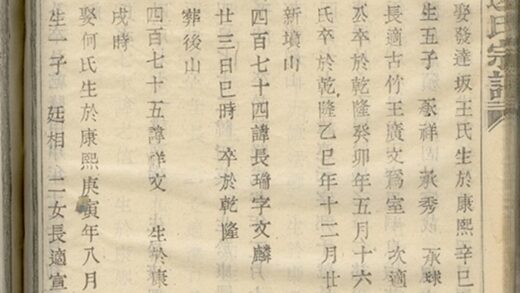 氏宗譜
娶發達坂王氏生於康熙辛巳
生五子 永祥 永秀 永球
長適古竹王廣文為室 次適
公卒於乾隆癸卯年五月十六
氏卒於乾隆乙巳年十二月廿
新墳山
四百七十四諱長瑞字文麟
廿三日巳時 卒於乾隆
葬後山
四百七十五諱祥文 生於康
戌時
娶何氏生於康熙庚寅年八月
生一子 廷相 二女長適宣